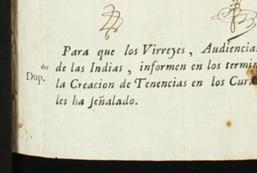 Para que los Virreyes, Audiencias
de las Indias, informen en los termin
Dup.do
la Creacion de Tenencias en los Cur
les ha señalado.